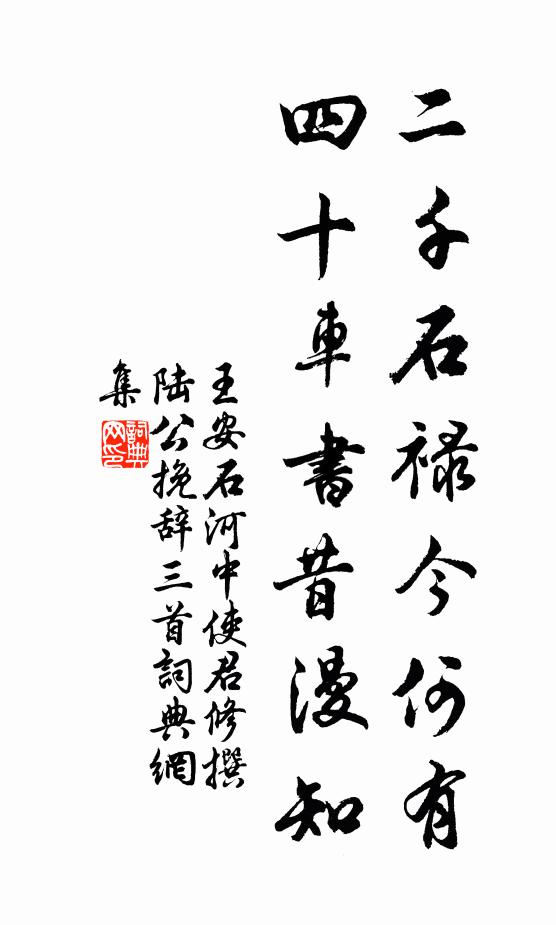 二千石禄今何有
四十車書昔漫知
王安石河中使君修撰
陆公挽辞三首詞典網
集
詞典网印